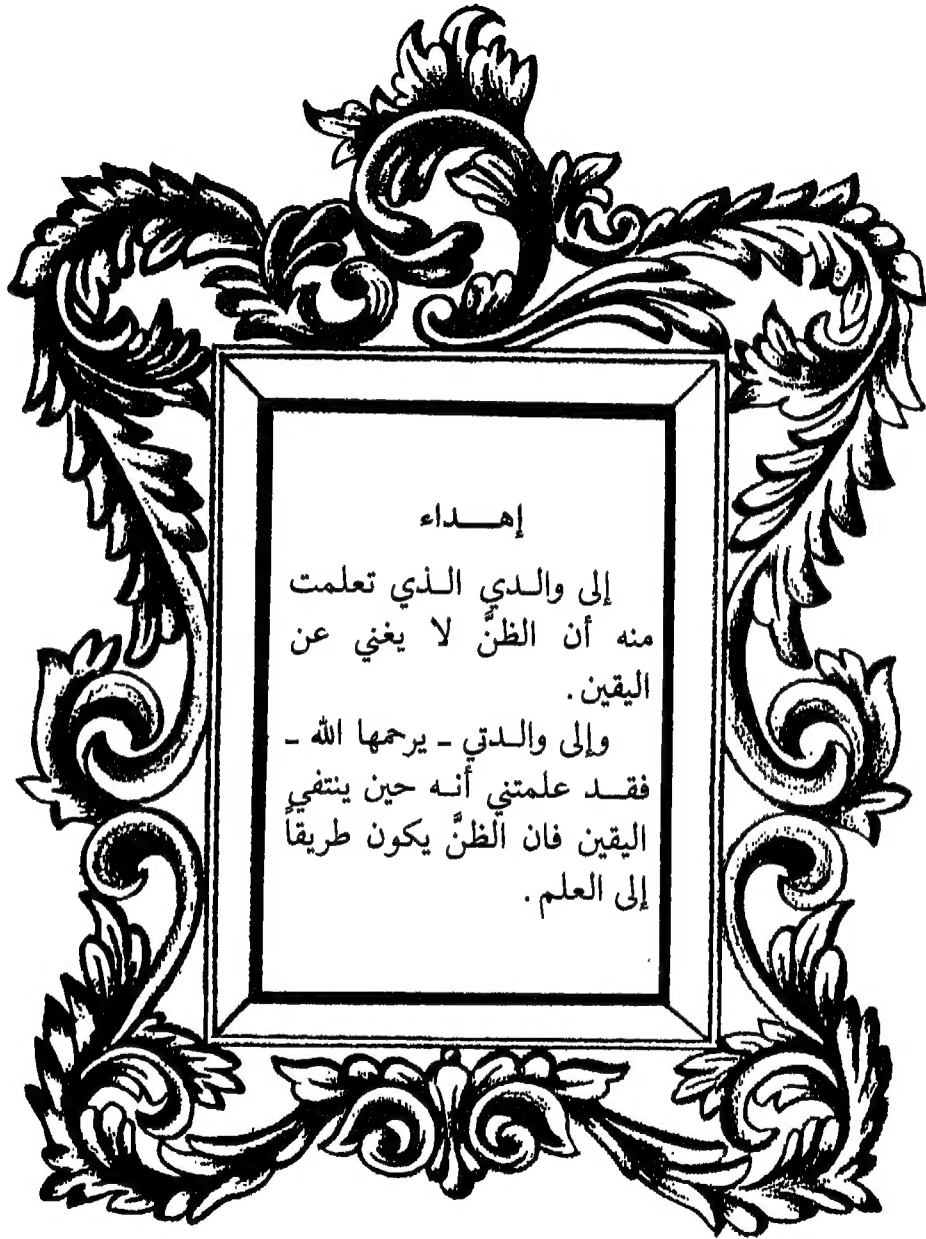 إهـــداء
إلى والـدي الـذي تعلمت
منه أن الظنَّ لا يغني عن
اليقين .
وإلى والـدتي ـ يرحمها الله ـ
فقـــد علمتني أنـه حين ينتفي
اليقين فان الظنَّ يكون طريقاً
إلى العلم .